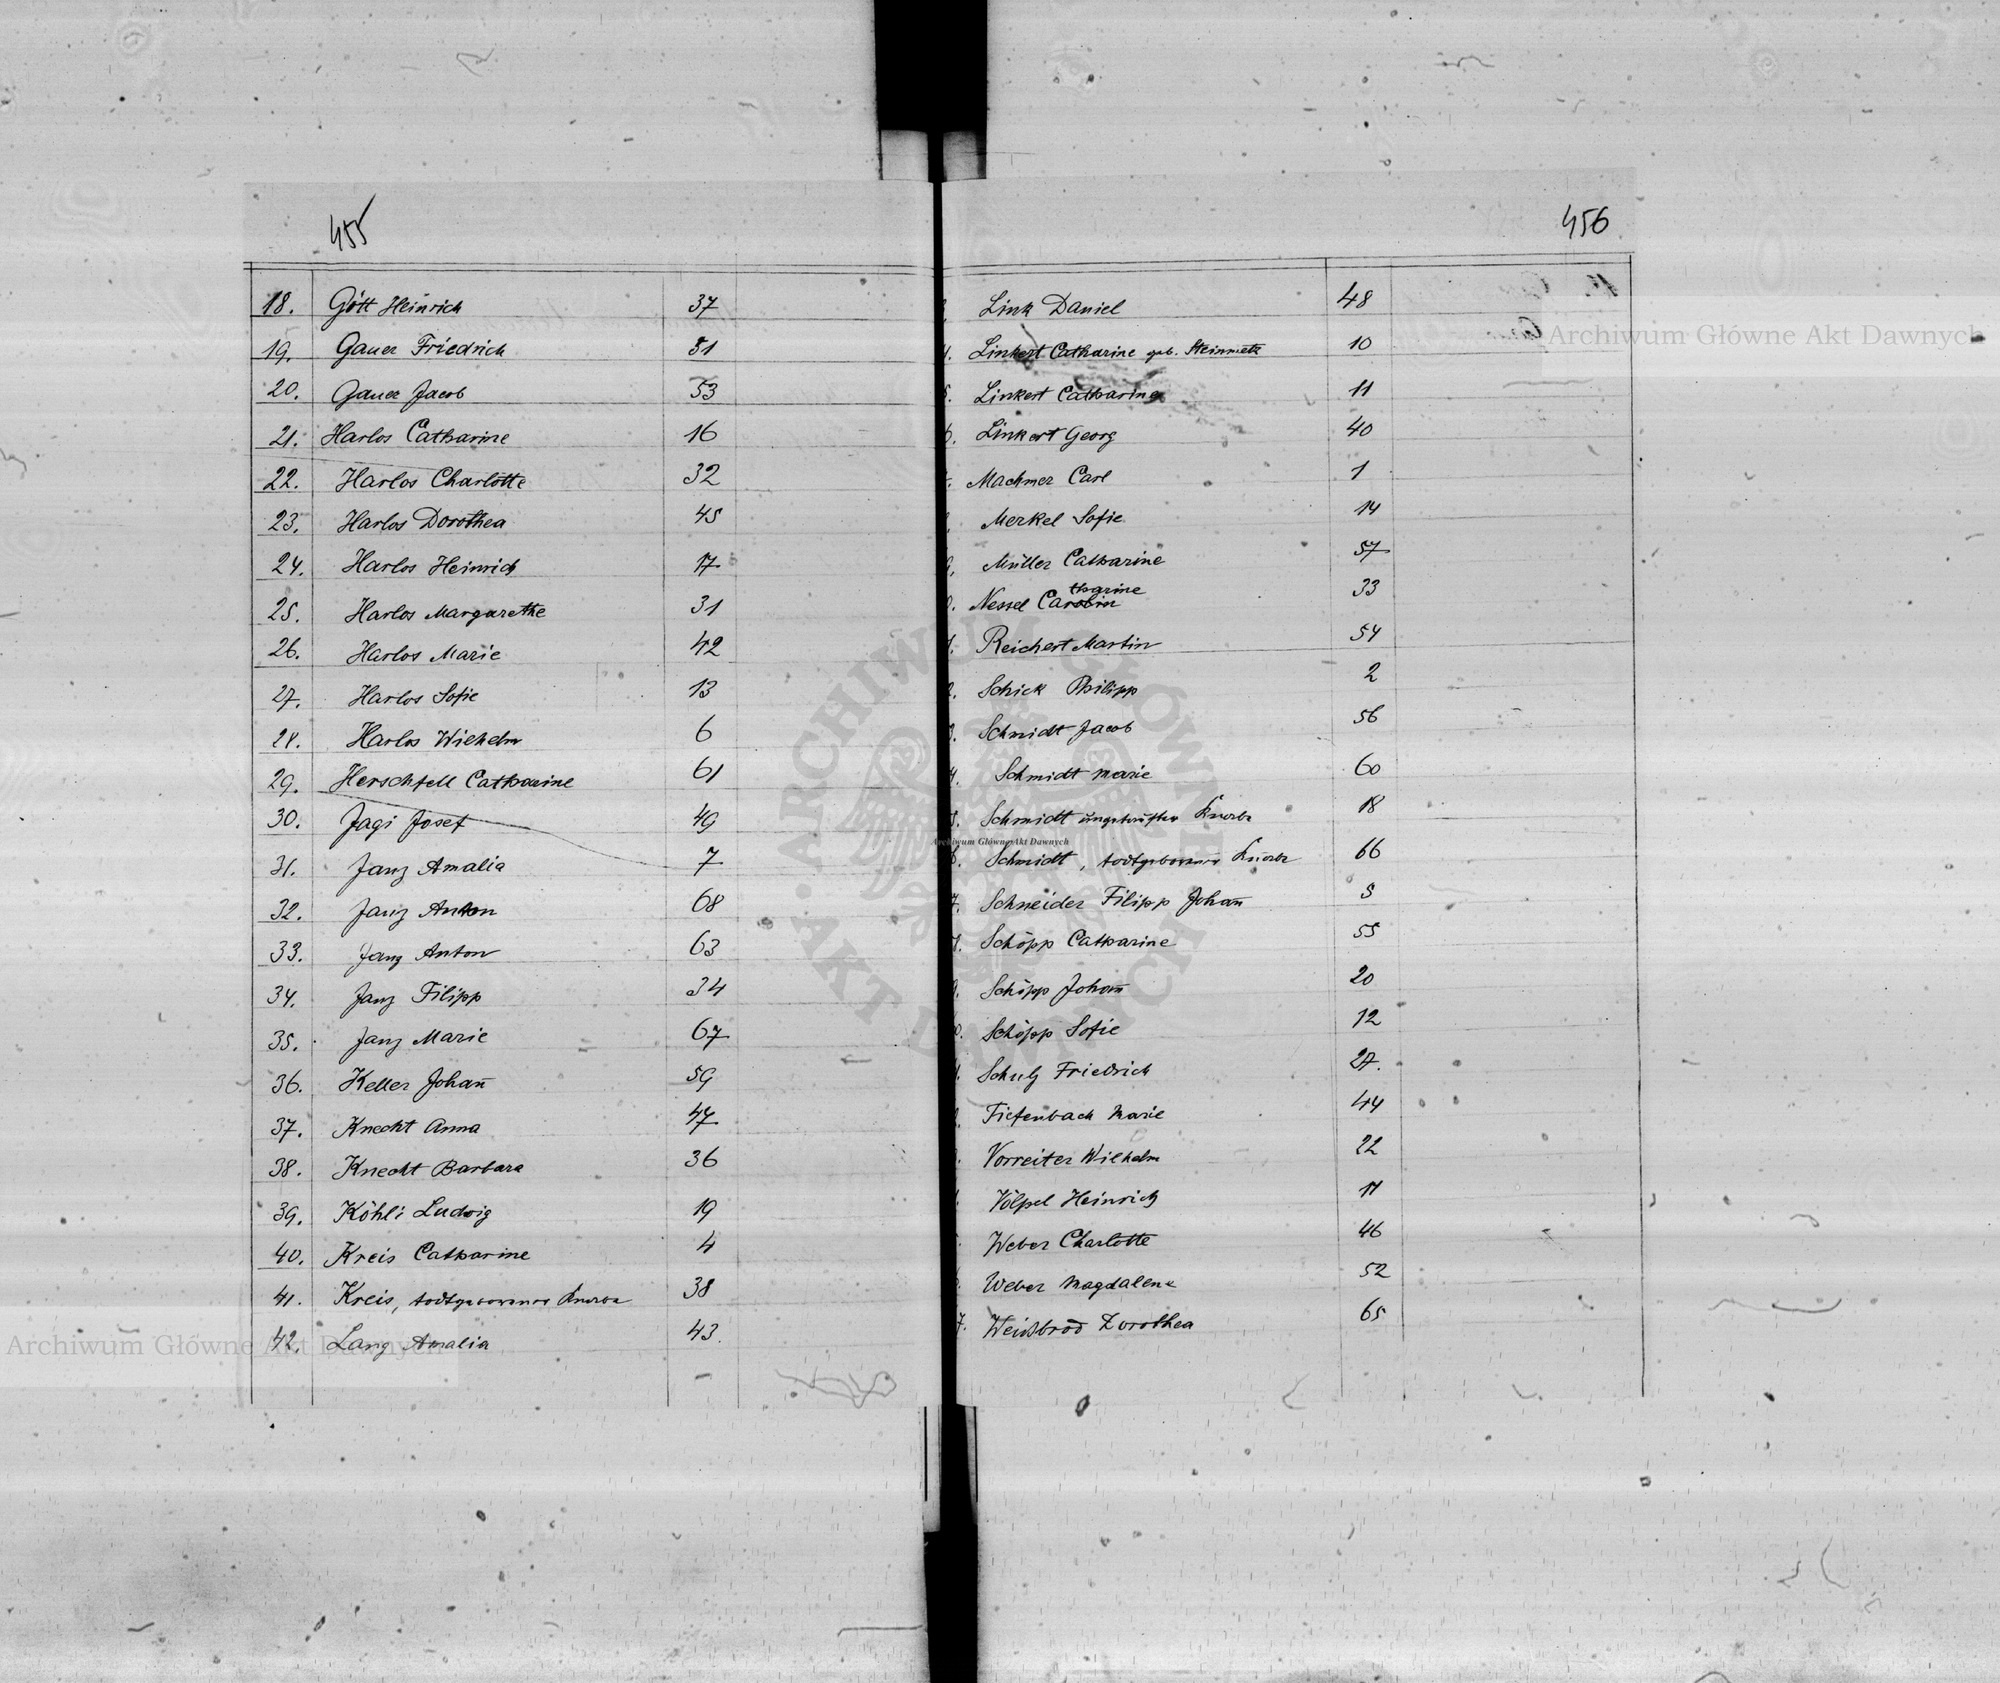 455
18. Gött Heinrich 37
19. Gauer Friedrich 51
20. Gauer Jacob 53
21. Harlos Catharine 16
22. Harlos Charlotte 32
23. Harlos Dorothea 45
24. Harlos Heinrich 17
25. Harlos Margarethe 31
26. Harlos Marie 42
27. Harlos Sofie 13
28. Harlos Wilhelm 6
29. Herschfell Catharine 61
30. Jagi Josef 49
31. Janz Amalia 7
32. Janz Anton 68
33. Janz Anton 63
34. Janz Filipp 34
35. Janz Marie 67
36. Keller Johann 59
37. Knecht Anna 47
38. Knecht Barbara 36
39. Köhli Ludwig 19
40. Kreis Catharine 4
41. Kreis, todtgeborener Knabe 38
42. Lang Amalia 43
456
Link Daniel 48
Linkert Catharine geb. Steinmetz 10
Linkert Catharine 11
Linkert Georg 40
Machmer Carl 1
Merkel Sofie 14
Müller Catharine 57
Nessel Catharine 33
Reichert Martin 54
Schick Philipp 2
Schmidt Jacob 56
Schmidt Marie 60
Schmidt ungetaufter Knabe 18
Schmidt, todtgeborener Knabe 66
7. Schneider Filipp Johann 5
Schöpp Catharine 55
Schöpp Johann 20
Schöpp Sofie 12
Schulz Friedrich 27.
Tiefenbach Marie 44
Vorreiter Wilhelm 22
Völpel Heinrich
Weber Charlotte 46
Weber Magdalena 52
7. Weißbrod Dorothea 65
Archiwum Główne Akt Dawnych
Archiwum Główne Akt Dawnych
Archiwum Główne Akt Dawnych
ARCHIWUM GŁÓWNE AKT DAWNYCH